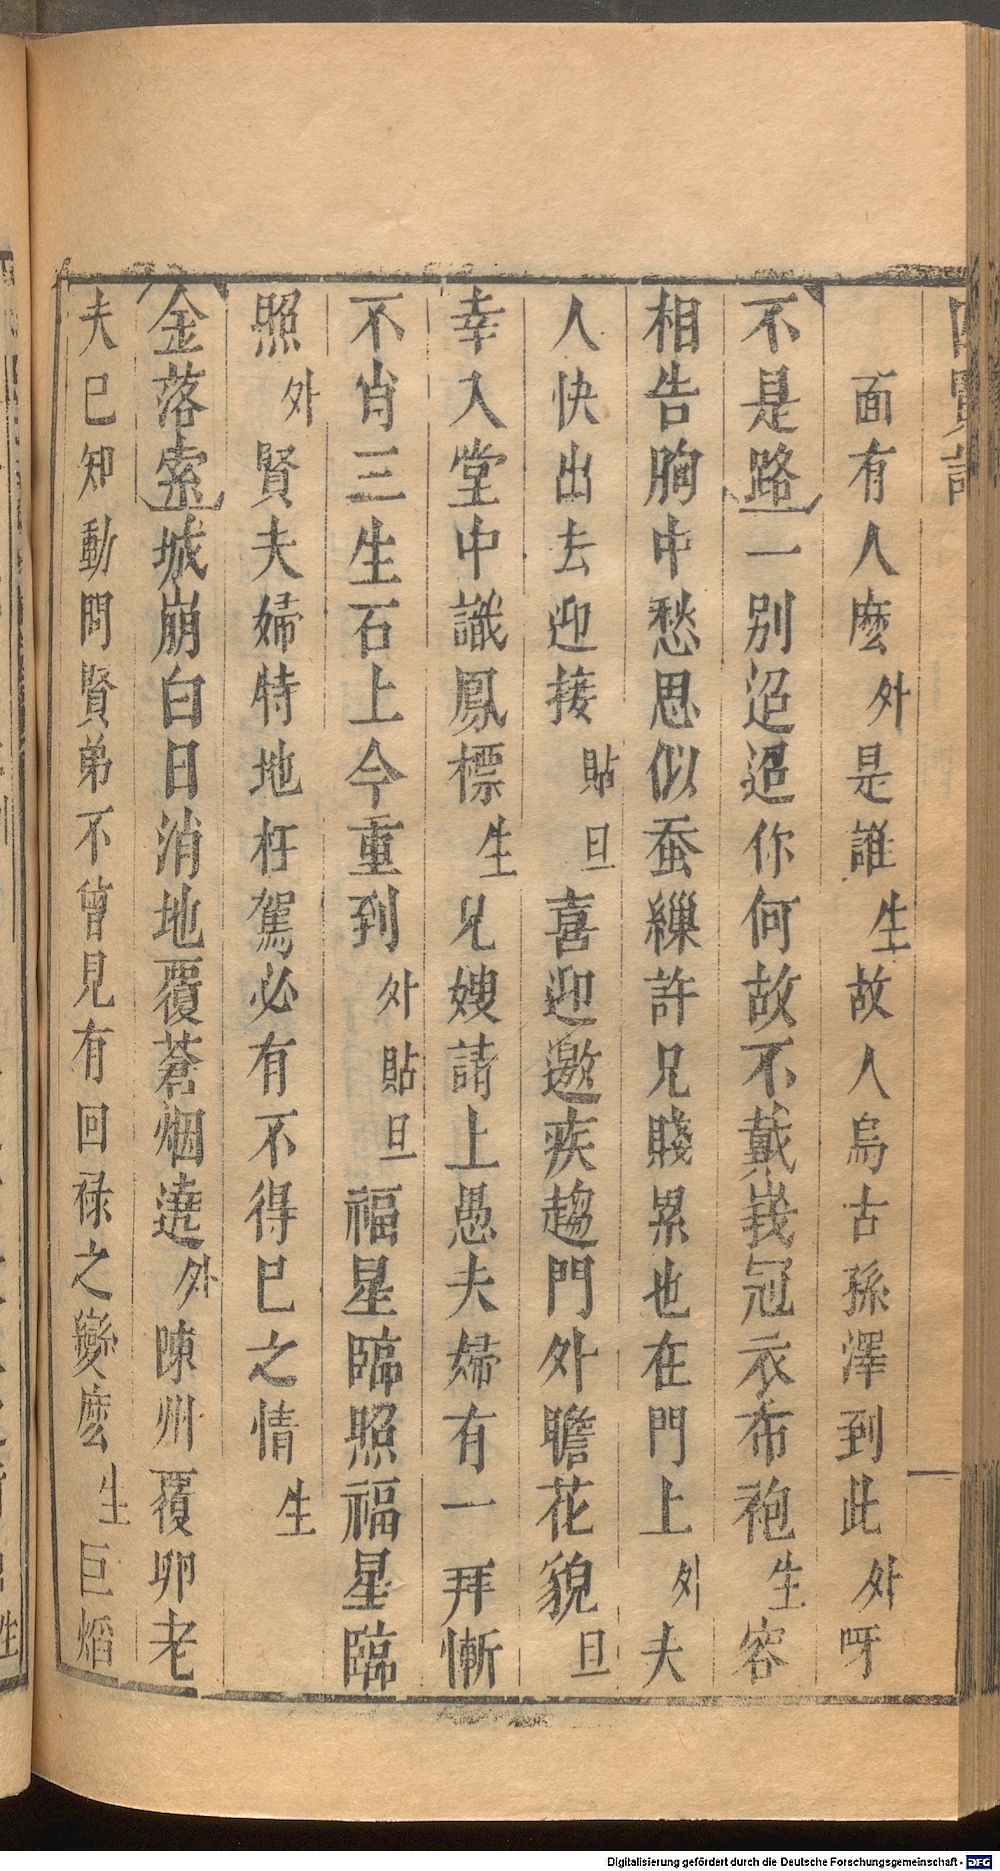 四賢記
面有人麽外是誰生故人烏古孫澤到此外呀
不是路一别迢迢你何故不戴峩冠衣布袍生容
相告胸中愁思似蚕繅許兄賤累也在門上外夫
人快出去迎接貼旦喜迎邀疾趨門外瞻花貌旦
幸入堂中識鳳標生兄嫂請上愚夫婦有一拜慚
不肖三生石上今重到外貼旦福星臨照福星臨
照外賢夫婦特地枉駕必有不得巳之情生
金落索城崩白日消地覆蒼烟遶外陳州覆卵老
夫巳知動問賢弟不曾見有回禄之變麽生巨熖
Digitalisierung gefördert durch die Deutsche Forschungsgemeinschaft - DFG